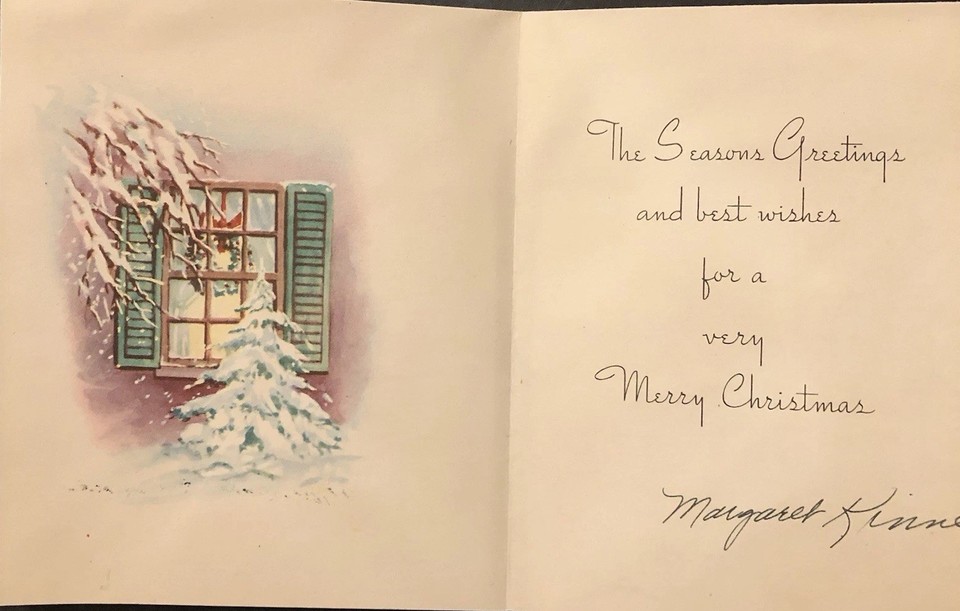 The Seasons Greetings
and best wishes
for a
very
Merry Christmas
Margaret Kinne